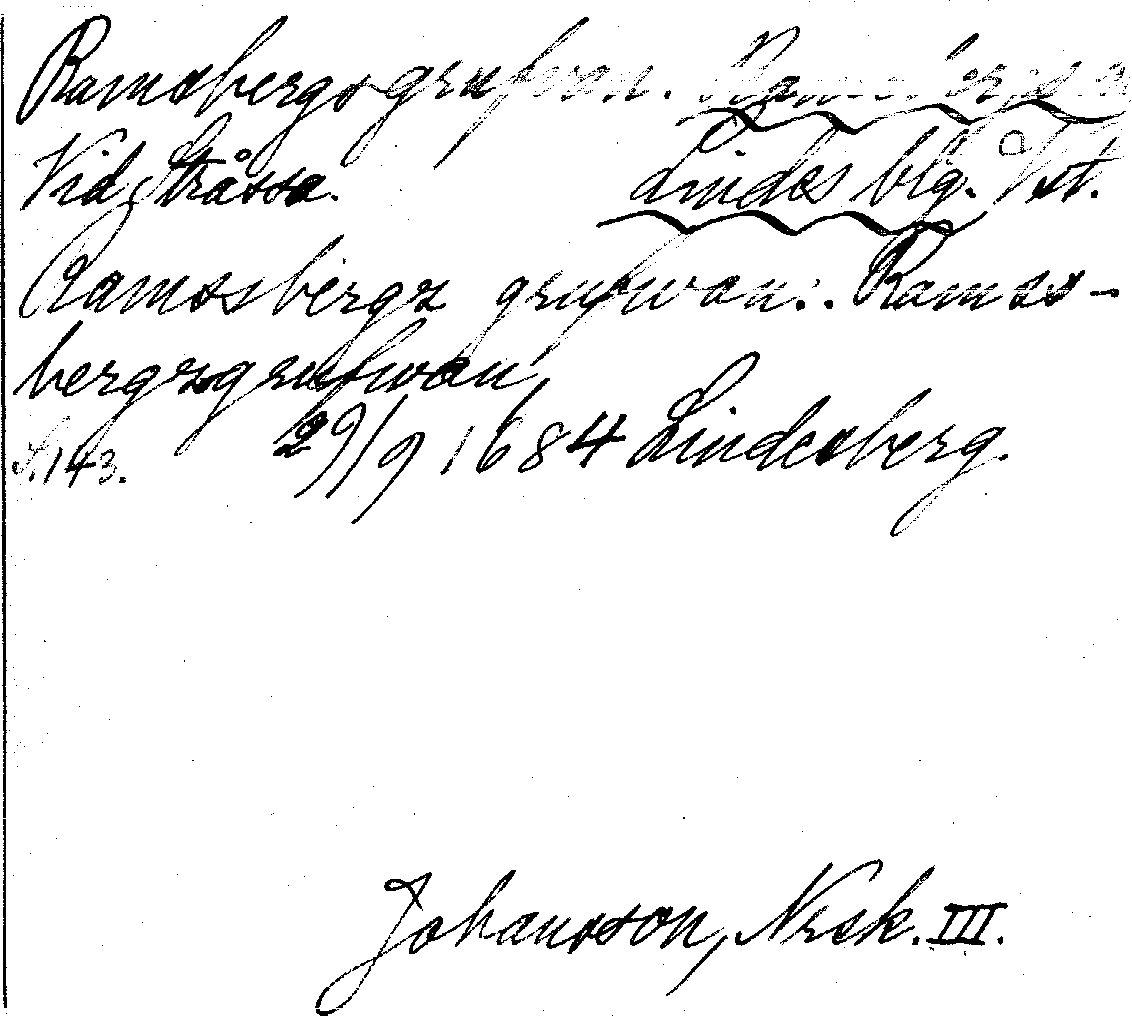 Ramsbergsgrufvan. Ramsbergs s
Vid Stråssa. Lindes blg. Vst.
Ramssbergz grufwan:. Ramss-
bergzgrufwan,
S.143. 29/9 1684 Lindesberg.
Johansson, Nrsk. III.